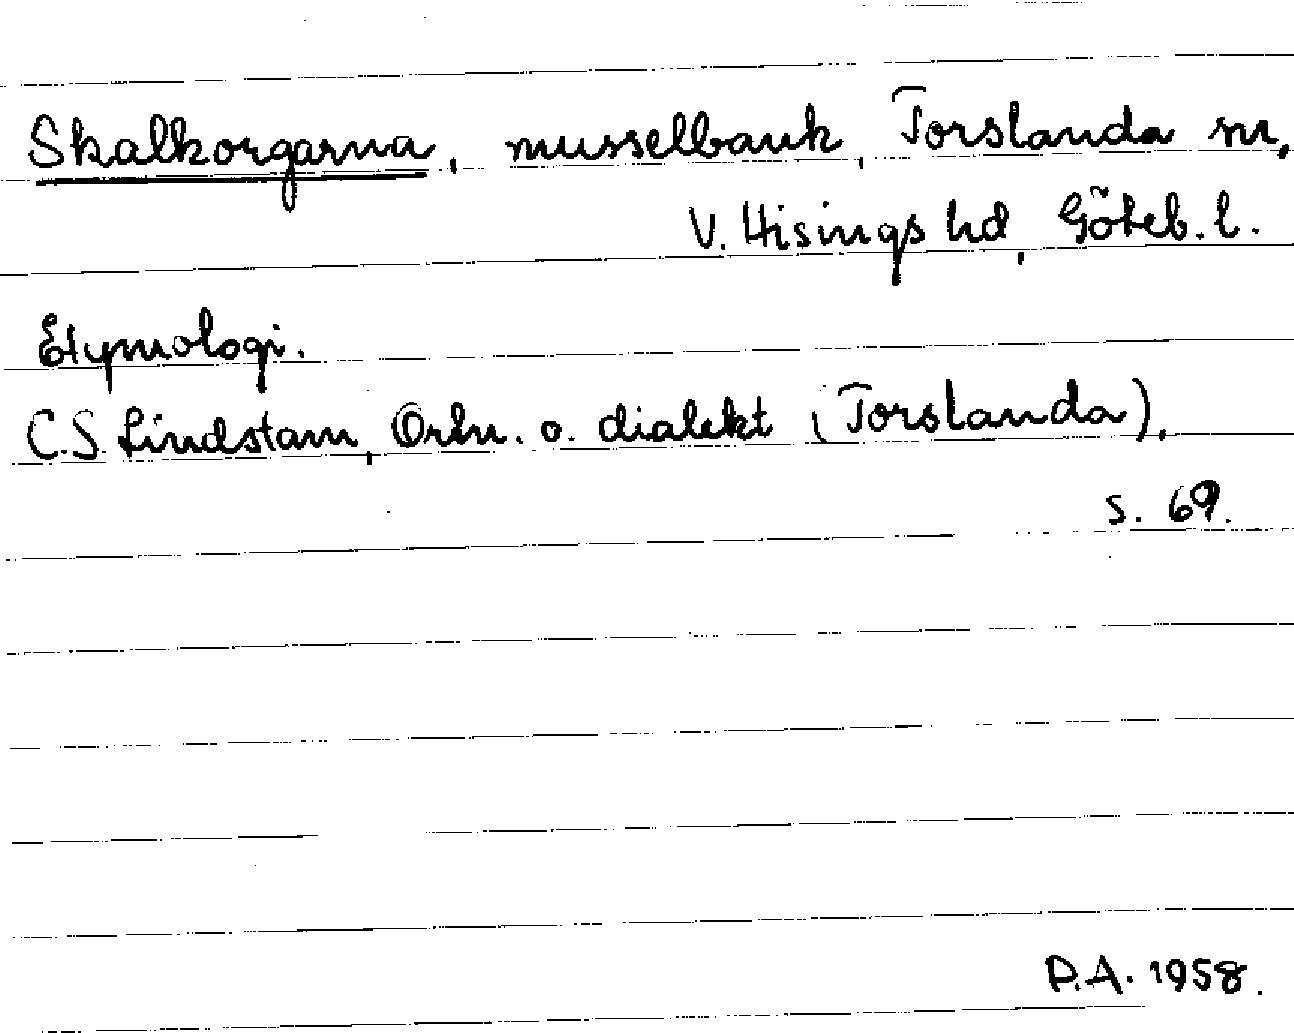 Skalkorgarna, musselbank, Torslanda sn,
V. Hisings hd, Göteb. l.
Etymologi.
C.S. Lindstam, Ortn. o. dialekt (Torslanda),
s. 69.
P.A. 1958.